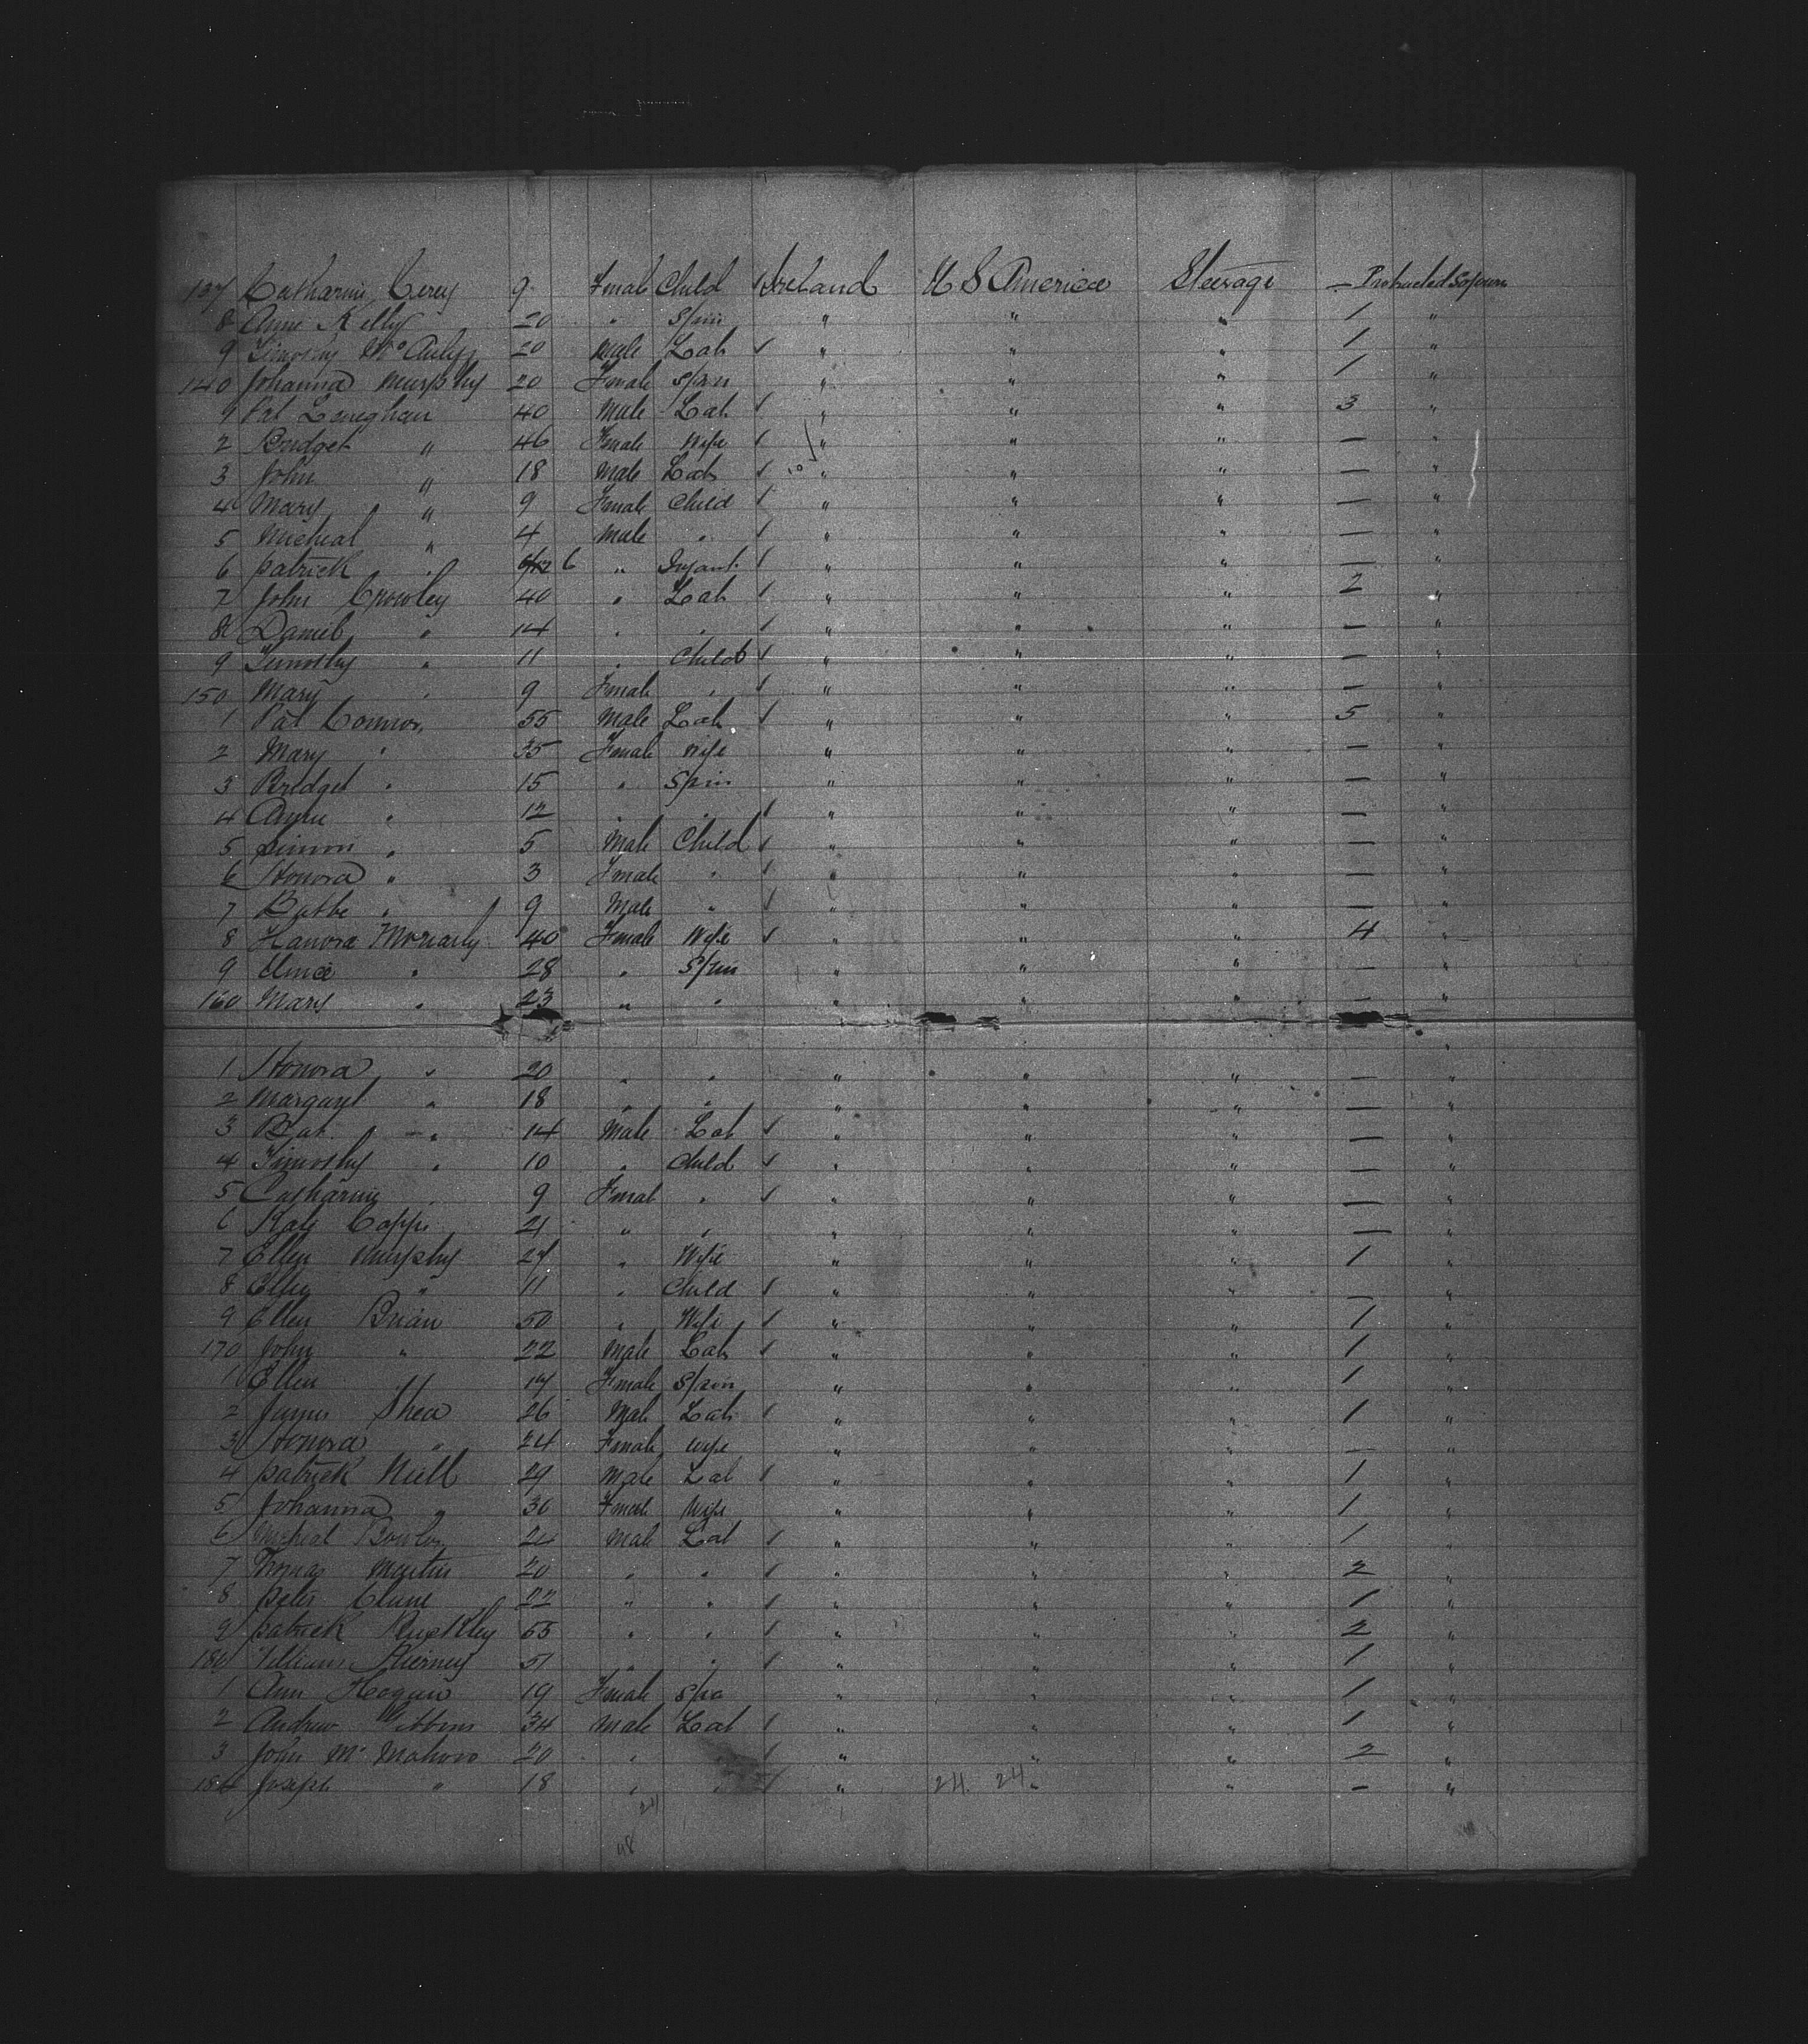 137 Catharine Cerey 9 Femal Child Ireland U S America Steerage — Protracted Sojourn
8 Anne Kelly 20 " Spin " " " 1 "
9 Timothy McAuly 20 Male Lab " " " 1 "
140 Johanna Murphy 20 Female Spin " " " 1 "
Pat Leneghan 40 Male Lab " " " 3 "
2 Bridget " 46 Female Wife " " " — "
3 John " 18 Male Lab " " " — "
4 Mary " 9 Female Child " " " — "
5 Micheal " 4 Male " " " " — "
6 patrick " 6 " Infant " " " — "
7 John Crowley 40 " Lab " " " 2 "
8 Daniel " 14 " " " " " — "
9 Timothy " 11 " Child " " " — "
150 Mary " 9 Female " " " " — "
1 Pat Connor 55 Male Lab " " " 5 "
2 Mary " 35 Female Wife " " " — "
3 Bridget " 15 " Spin " " " — "
4 " 12 " " " " " — "
5 Simon " 5 Male Child " " " — "
6 Honora " 3 Female " " " " — "
7 " 9 Male " " " " — "
8 Hanora Moriarty 40 Female Wife " " " 4 "
9 " 28 " Spin " " " — "
160 Mary " 23 " " " " " — "
1 Honora " 20 " " " " " — "
2 Margaret " 18 " " " " " — "
3 Pat " 14 Male Lab " " " — "
4 Timothy " 10 " Child " " " — "
5 Catharine " 9 Femal " " " " — "
6 Kate 21 " " " " " — "
7 Ellen Murphy 27 " Wife " " " 1 "
8 " 11 " Child " " " — "
9 Ellen Brian 50 " Wife " " " 1 "
170 John " 22 Male Lab " " " 1 "
1 Ellen " 17 Female Spin " " " 1 "
2 James Shea 26 Male Lab " " " 1 "
3 Honora " 24 Female Wife " " " — "
4 patrick Niell 29 Male Lab " " " 1 "
5 Johanna " 30 Female Wife " " " 1 "
6 Micheal 24 Male Lab " " " 1 "
7 Thomas Martin 20 " " " " " 2 "
8 peter Clune 22 " " " " " 1 "
9 patrick 55 " " " " " 2 "
180 William 51 " " " " " 1 "
1 Ann Hogan 19 Female " " " 1 "
2 Andrew Gibbons 34 Male Lab " " " 1 "
3 John Mc Mahon 20 " " " " " 2 "
184 Joseph " 18 " " " 24 24 " " — "
24
48